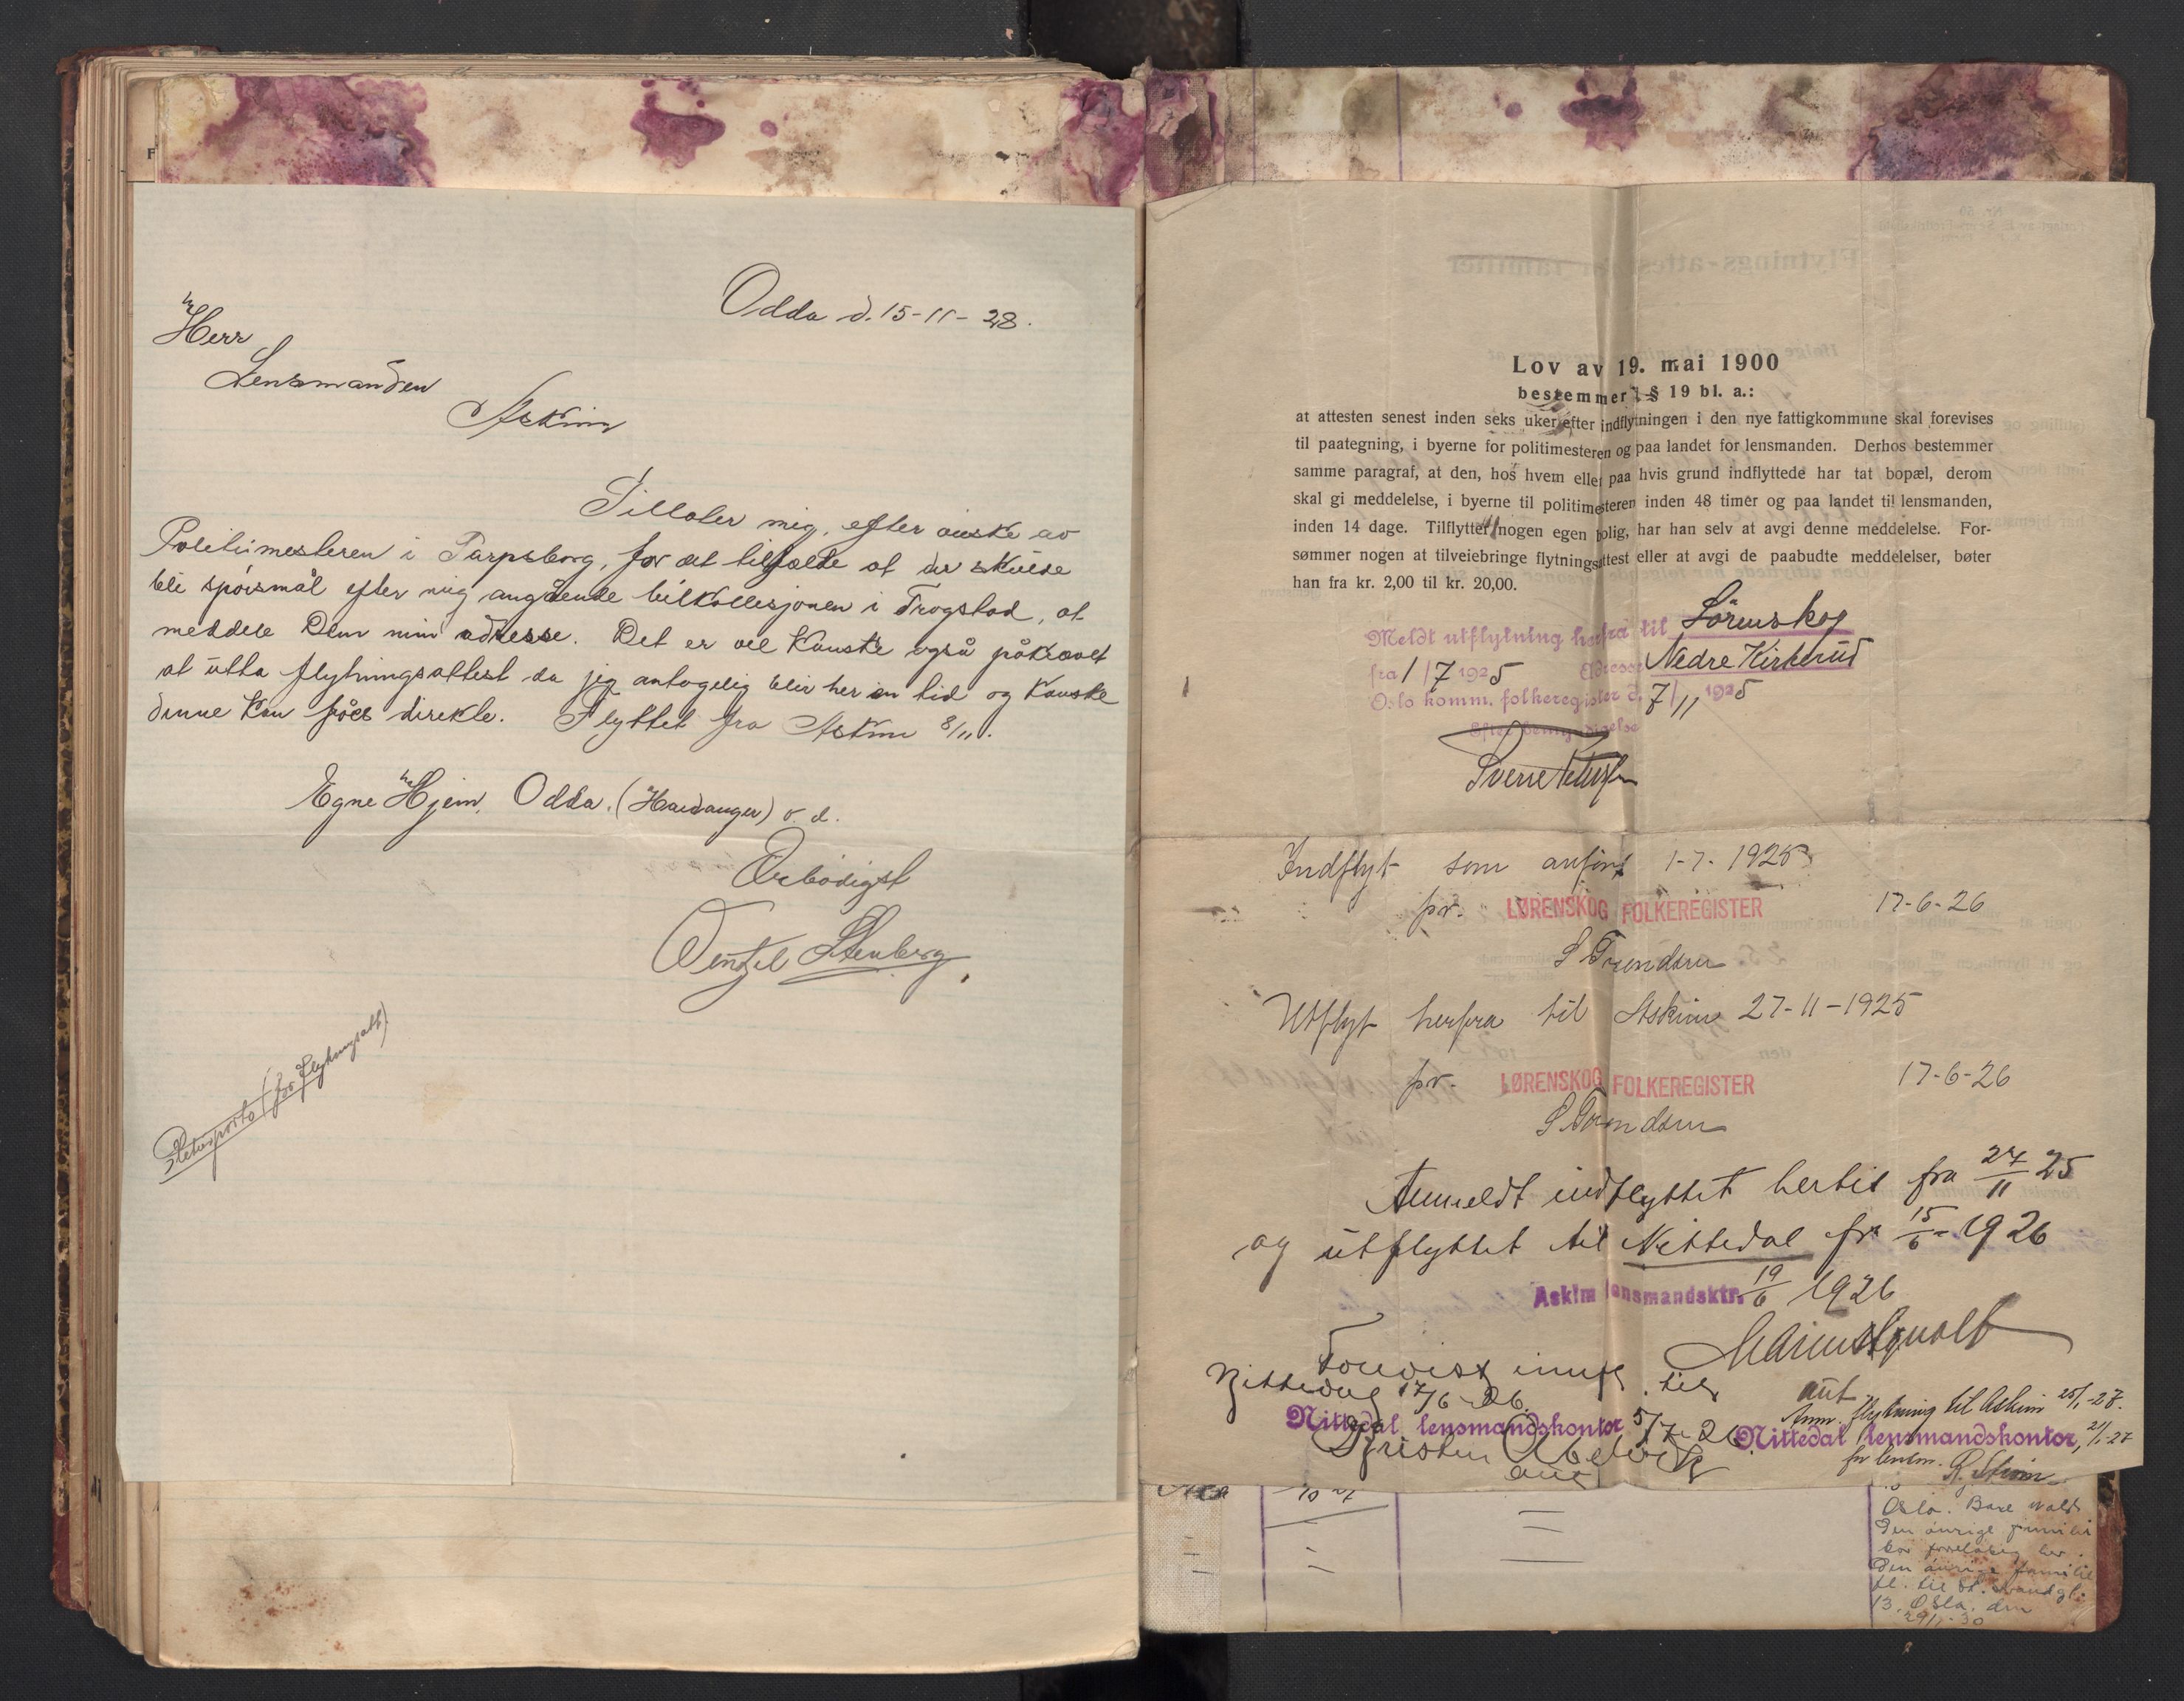 Odda d. 15-11-28.
Herr
Lensmanden
Askim
Tillater mig, efter ønske av
Politimesteren i Sarpsborg, for det tilfælde at der skulde
bli spørsmål efter mig angående bilkollisjonen i Trøgstad, at
meddele Dem min adresse. Det er vel kanske også påkrævet
at utta flytningsattest da jeg antagelig blir her en tid og kanske
denne kan fåes direkte. Flyttet fra Askim 8/11.
Egne Hjem, Odda. (Hardanger)
Ærbødigst
Wentzel Stenberg
Returporto (for flytningsatt)
Lov av 19. mai 1900
bestemmer i § 19 bl. a.:
at attesten senest inden seks uker efter indflytningen i den nye fattigkommune skal forevises
til paategning, i byerne for politimesteren og paa landet for lensmanden. Derhos bestemmer
samme paragraf, at den, hos hvem eller paa hvis grund indflyttede har tat bopæl, derom
skal gi meddelelse, i byerne til politimesteren inden 48 timer og paa landet til lensmanden,
inden 14 dage. Tilflytter nogen egen bolig, har han selv at avgi denne meddelelse. For-
sømmer nogen at tilveiebringe flytningsattest eller at avgi de paabudte meddelelser, bøter
han fra kr. 2,00 til kr. 20,00.
Meldt utflytning herfra til Lörenskog
fra 1/7 1925 Adresse Nedre Kirkerud
Oslo komm. folkeregister d. 7/11 1925
Efter bemyndigelse
Sverre
Indflyt som anført 1-7-1925
pr. LØRENSKOG FOLKEREGISTER 17-6-26
S Trondsen
Utflyt herfra til Askim 27-11-1925
pr. LØRENSKOG FOLKEREGISTER 17-6-26
S Trondsen
Anmeldt indflyttet hertil fra 27/11 25
og utflyttet til Nittedal fr 15/6-1926
Askim lensmandsktr. 19/6 1926
Forevist innfl. til
Nittedal 17/6 26.
aut
Anm. flytning til Askim 25/1-27.
Nittedal lensmandskontor 5/7-26
Nittedal lensmandskontor, 21/1-27
for lensm.
aut
Oslo. Bare
Den øvrige familie
bor foreløbig her.
Den øvrige familie
fl. til
13. Oslo. den
29/1-30